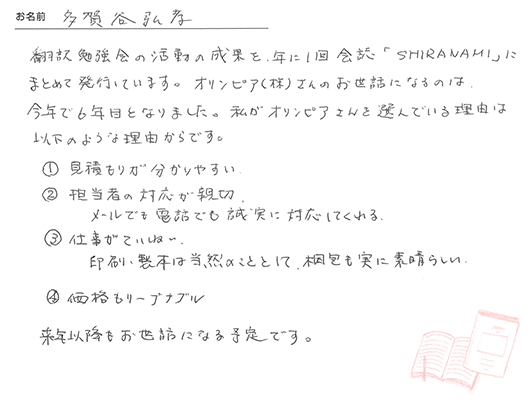 お名前 多賀谷弘孝
翻訳勉強会の活動の成果を、年に1回会誌「SHIRANAMI」に
まとめて発行しています。オリンピア(株)さんのお世話になるのは、
今年で6年目となりました。私がオリンピアさんを選んでいる理由は
以下のような理由からです。
① 見積もりが分かりやすい。
② 担当者の対応が親切。
メールでも電話でも誠実に対応してくれる。
③ 仕事がていねい。
印刷、製本は当然のこととして、梱包も実に素晴らしい。
④ 価格もリーズナブル
来年以降もお世話になる予定です。